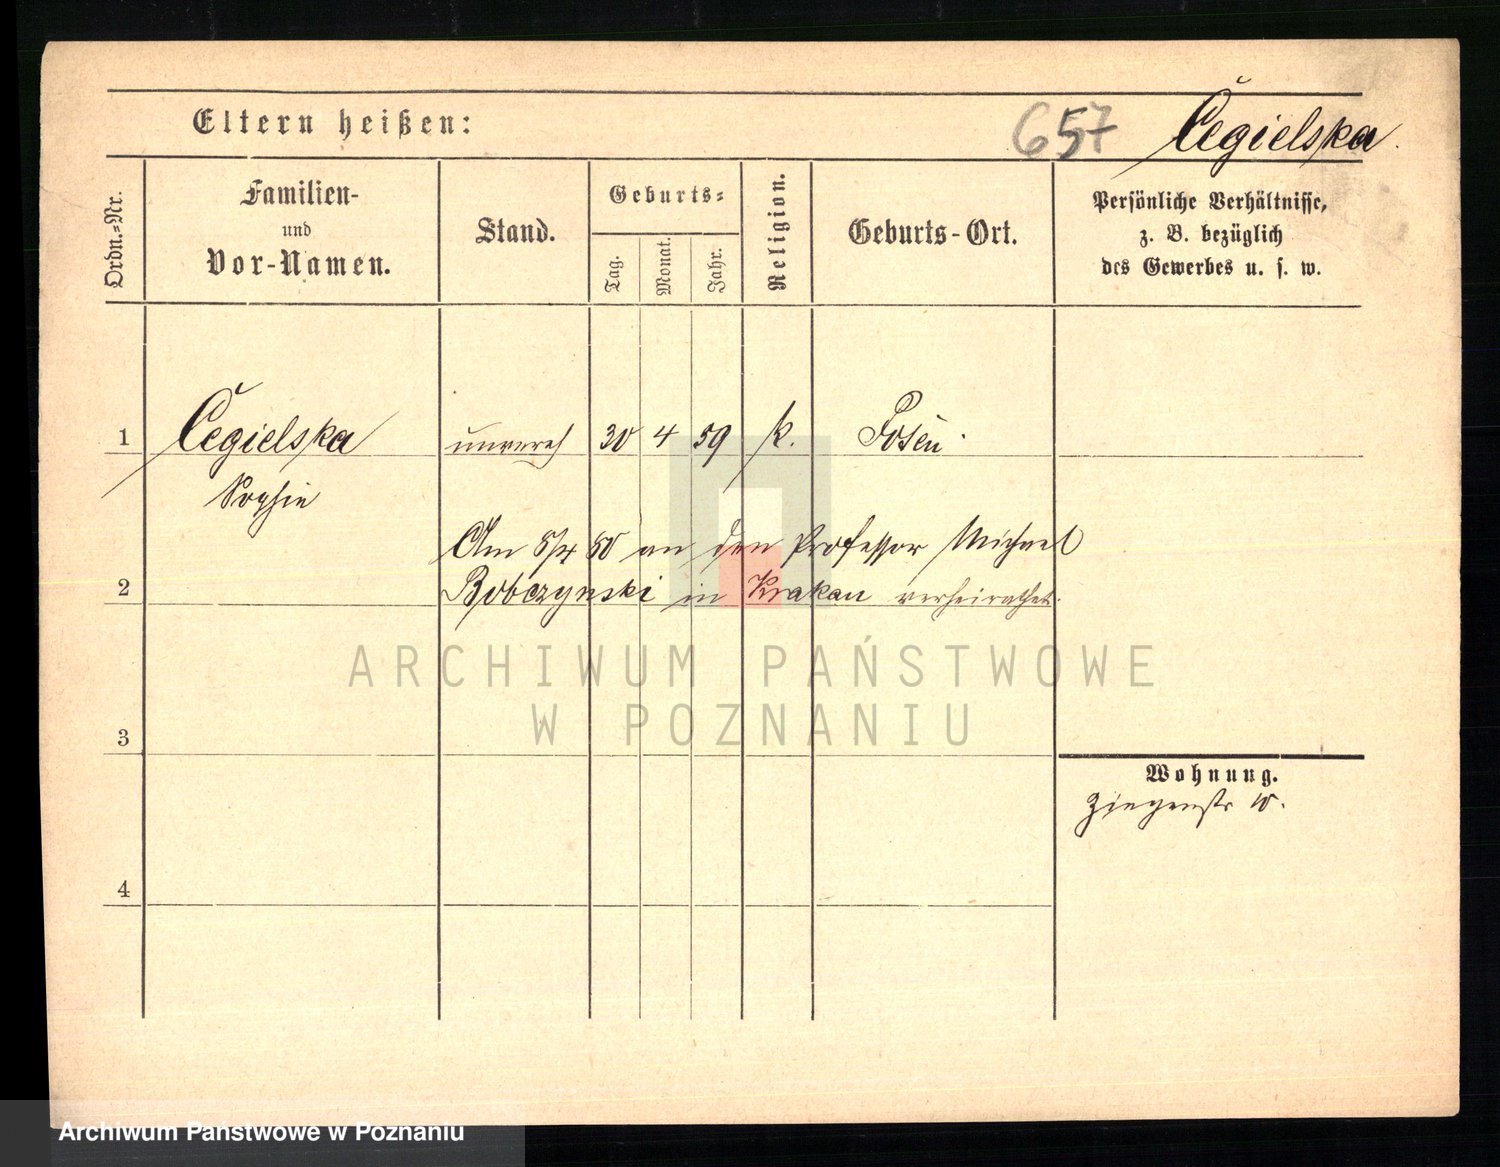 Eltern heißen:
657
Čegielska.
Ordn.-Nr.
Familien-
und
Vor-Namen.
Stand.
Geburts-
Tag.
Monat.
Jahr.
Religion.
Geburts-Ort.
Persönliche Verhältnisse,
z. B. bezüglich
des Gewerbes u. s. w.
1 Čegielska unvereh 30 4 59 k. Posen.
Sophie
Am 5/4 80 an den Professor Michael
2 Bobczynski in Krakau verheirathet.
ARCHIWUM PAŃSTWOWE
W POZNANIU
3
Wohnung.
Ziegenstr 10.
4
Archiwum Państwowe w Poznaniu